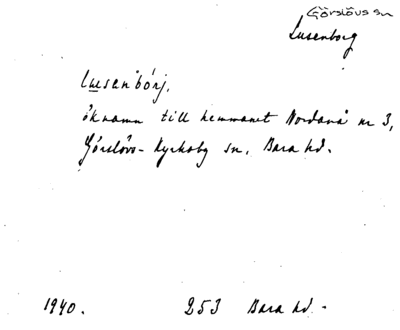 Görslövs sn
Lusenborg
lusenbórj,
öknamn till hemmanet Nordanå nr 3,
Görslövs-Kyrkoby sn. Bara hd.
1940. 253 Bara hd.